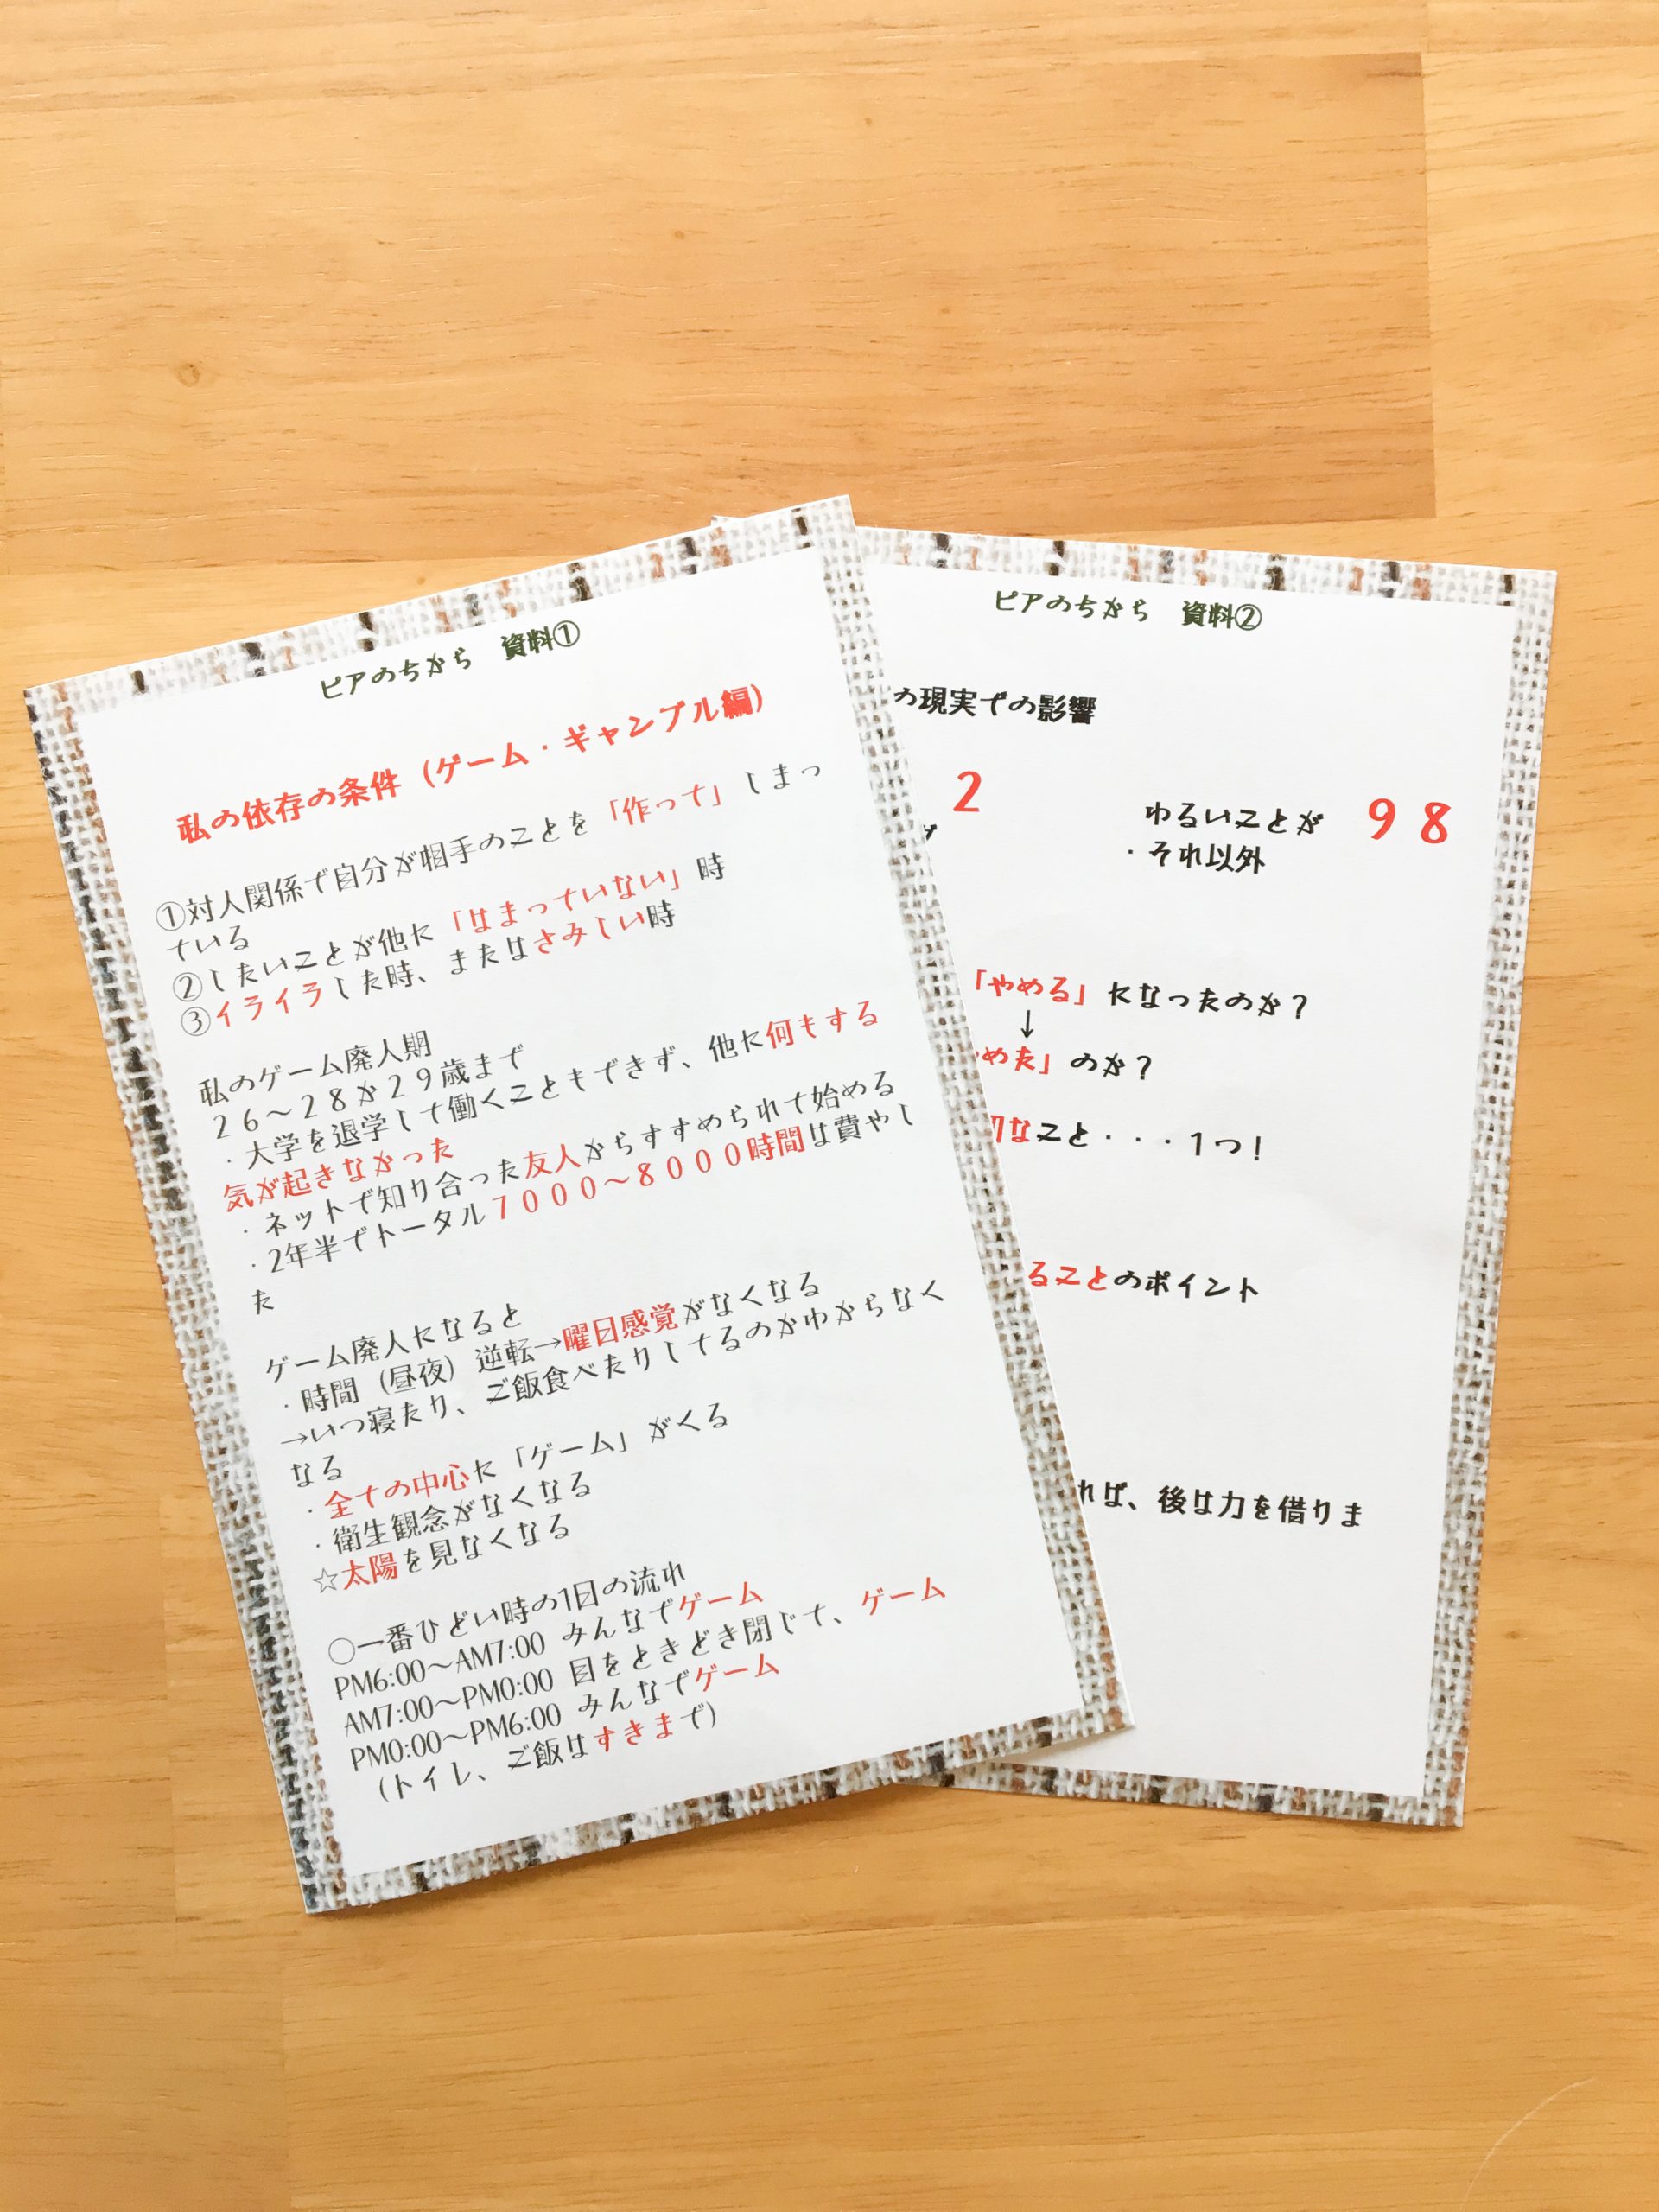 ピアのちから 資料①
私の依存の条件（ゲーム・ギャンブル編）
①対人関係で自分が相手のことを「作って」しまっ
ている
②したいことが他に「はまっていない」時
③イライラした時、またはさみしい時
私のゲーム廃人期
２６～２８か２９歳まで
・大学を退学して働くこともできず、他に何もする
気が起きなかった
・ネットで知り合った友人からすすめられて始める
・2年半でトータル７０００～８０００時間は費やし
た
ゲーム廃人になると
・時間（昼夜）逆転→曜日感覚がなくなる
→いつ寝たり、ご飯食べたりしてるのかわからなく
なる
・全ての中心に「ゲーム」がくる
・衛生観念がなくなる
☆太陽を見なくなる
○一番ひどい時の1日の流れ
PM6:00～AM7:00 みんなでゲーム
AM7:00～PM0:00 目をときどき閉じて、ゲーム
PM0:00～PM6:00 みんなでゲーム
（トイレ、ご飯はすきまで）
ピアのちから 資料②
の現実での影響
２
わるいことが ９８
・それ以外
「やめる」になったのか？
↓
めた」のか？
なこと・・・１つ！
ることのポイント
れば、後は力を借りま